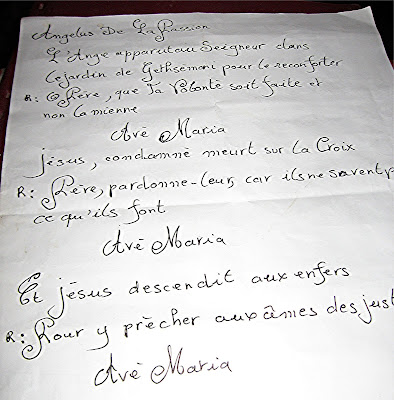 Angelus De La Passion
L'Ange apparutau Seigneur dans
Lejardin de Gethsémani pour le reconforter
R: O Père, que Ta Volonté soit faite et
non la mienne
Avé Maria
Jésus, condamné meurt sur la Croix
R: Père, pardonne-leur, car ils ne savent p
ce qu'ils font
Avé Maria
Et jésus descendit aux enfers
R: Pour y prècher aux âmes des just
Avé Maria